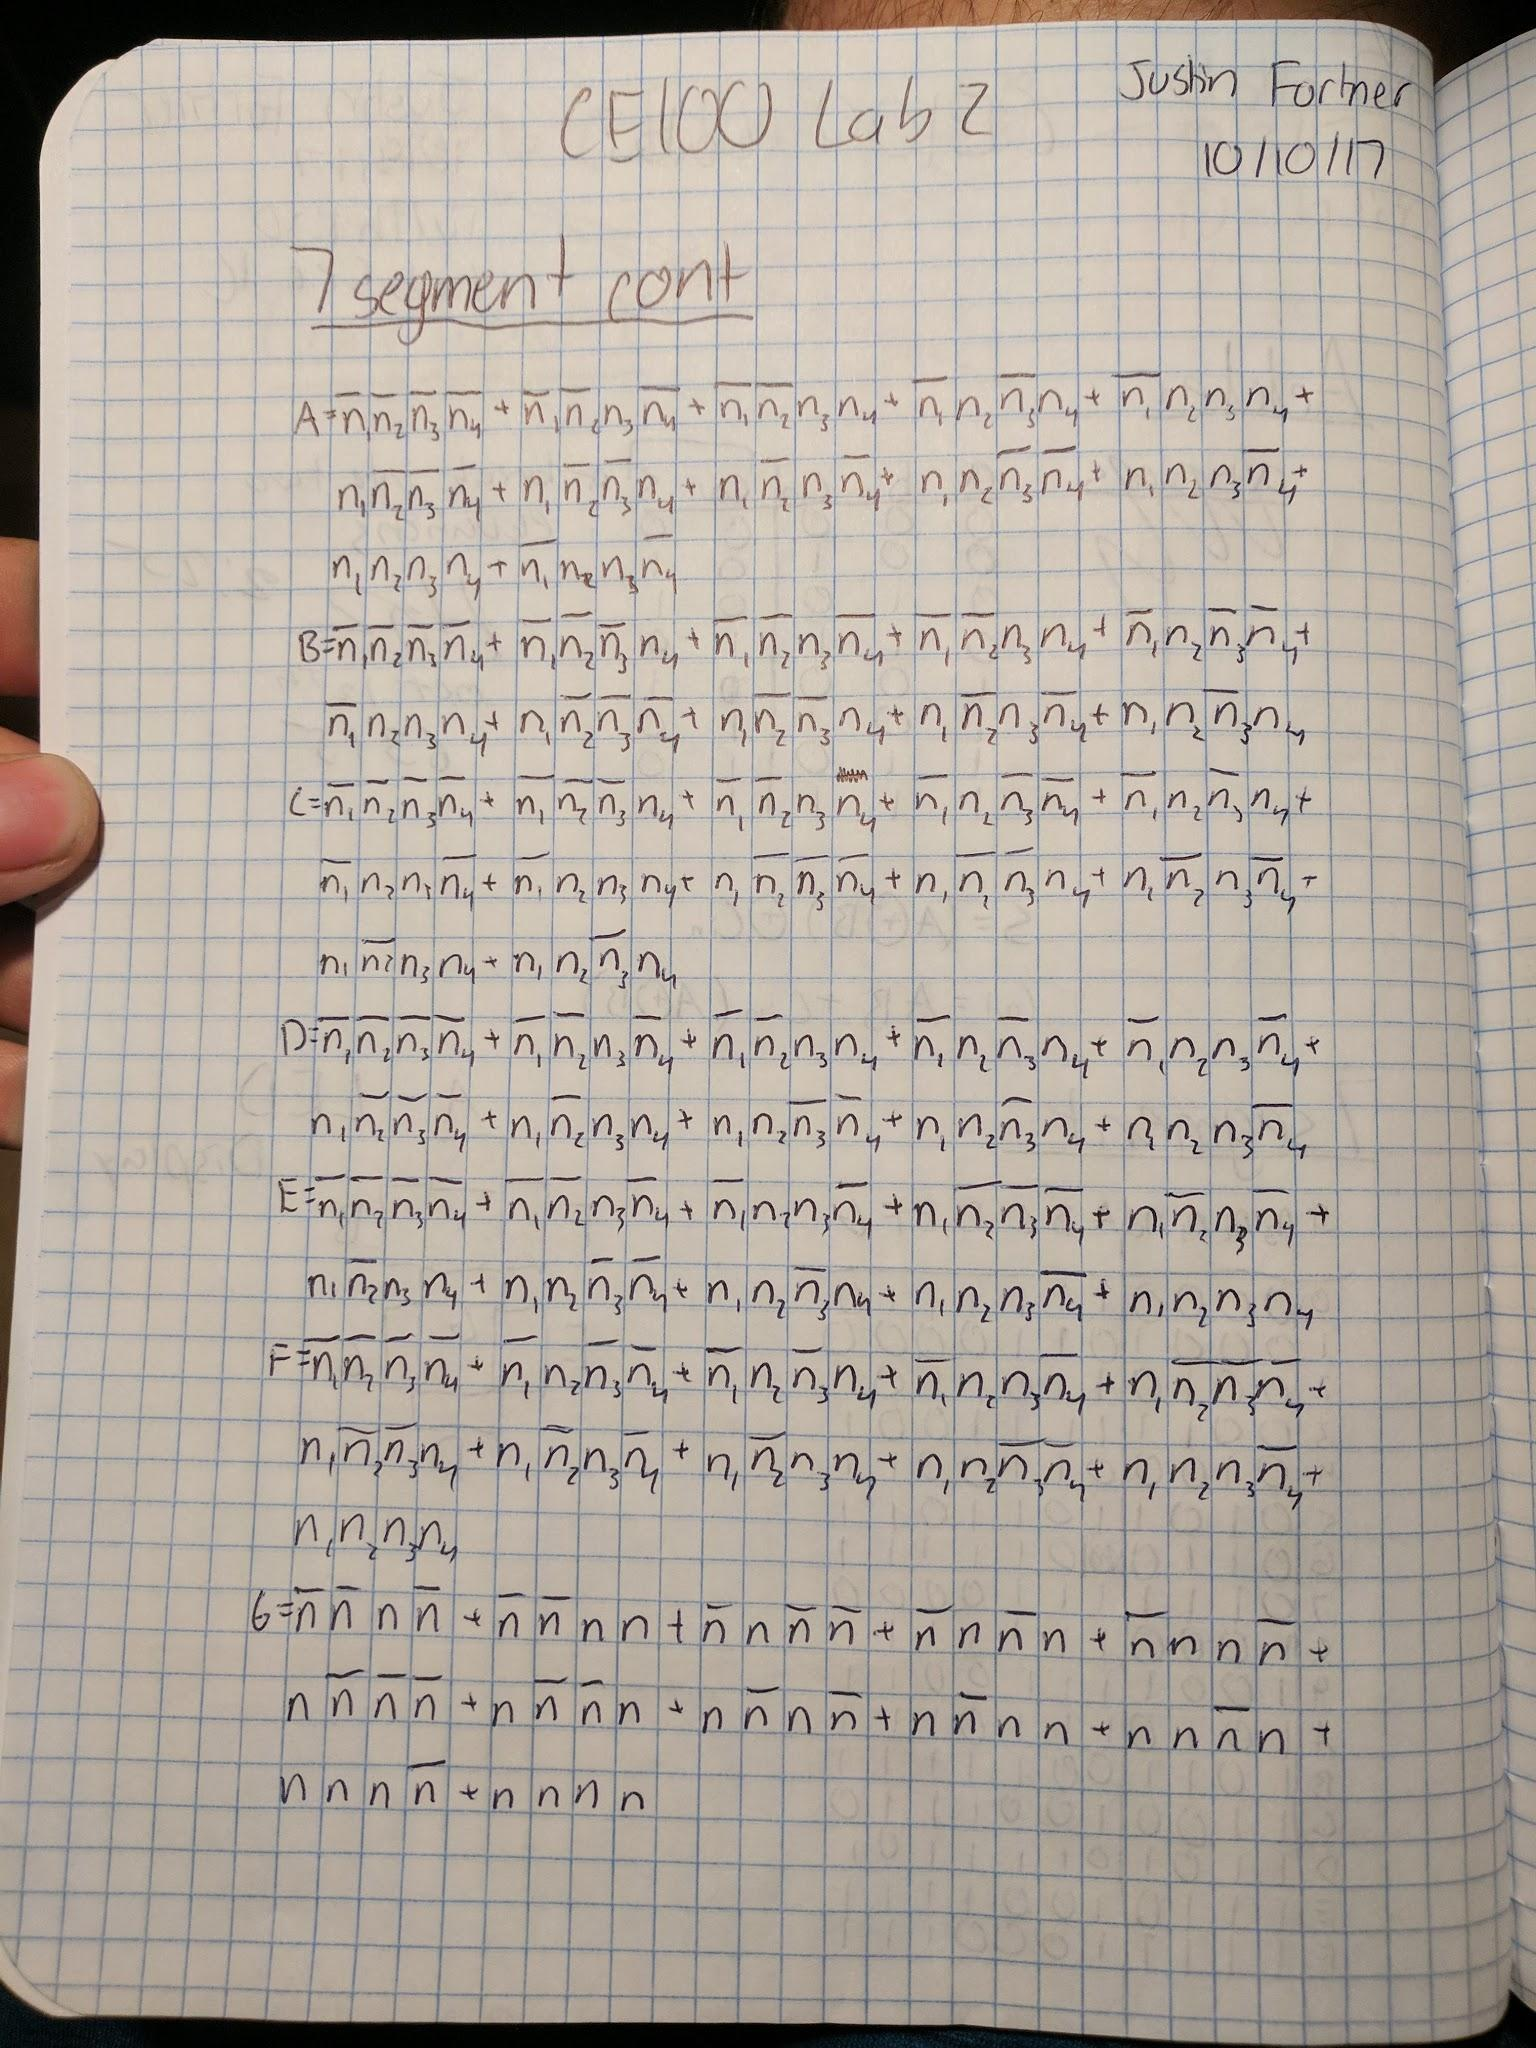 CE100 Lab 2
Justin Fortner
10/10/17
7 segment cont
A=n̅₁n̅₂n̅₃n̅₄+n̅₁n̅₂n₃n̅₄+n̅₁n̅₂n₃n₄+n̅₁n₂n̅₃n₄+n̅₁n₂n₃n₄+
n₁n̅₂n̅₃n̅₄+n₁n̅₂n̅₃n₄+n₁n̅₂n₃n̅₄+n₁n₂n̅₃n̅₄+n₁n₂n₃n̅₄+
n₁n₂n₃n₄+n̅₁n₂n₃n̅₄
B=n̅₁n̅₂n̅₃n̅₄+n̅₁n̅₂n̅₃n₄+n̅₁n̅₂n₃n̅₄+n̅₁n̅₂n₃n₄+n̅₁n₂n̅₃n̅₄+
n̅₁n₂n₃n₄+n₁n̅₂n̅₃n̅₄+n₁n̅₂n̅₃n₄+n₁n̅₂n₃n̅₄+n₁n₂n̅₃n₄
C=n̅₁n̅₂n̅₃n̅₄+n̅₁n̅₂n̅₃n₄+n̅₁n̅₂n₃n₄+n̅₁n₂n̅₃n̅₄+n̅₁n₂n̅₃n₄+
n̅₁n₂n₃n̅₄+n̅₁n₂n₃n₄+n₁n̅₂n̅₃n̅₄+n₁n̅₂n̅₃n₄+n₁n̅₂n₃n̅₄+
n₁n̅₂n₃n₄+n₁n₂n̅₃n₄
D=n̅₁n̅₂n̅₃n̅₄+n̅₁n̅₂n₃n̅₄+n̅₁n̅₂n₃n₄+n̅₁n₂n̅₃n₄+n̅₁n₂n₃n̅₄+
n₁n̅₂n̅₃n̅₄+n₁n̅₂n₃n₄+n₁n₂n̅₃n̅₄+n₁n₂n̅₃n₄+n₁n₂n₃n̅₄
E=n̅₁n̅₂n̅₃n̅₄+n̅₁n̅₂n₃n̅₄+n̅₁n₂n₃n̅₄+n₁n̅₂n̅₃n̅₄+n₁n̅₂n₃n̅₄+
n₁n̅₂n₃n₄+n₁n₂n̅₃n̅₄+n₁n₂n̅₃n₄+n₁n₂n₃n̅₄+n₁n₂n₃n₄
F=n̅₁n̅₂n̅₃n̅₄+n̅₁n₂n̅₃n̅₄+n̅₁n₂n̅₃n₄+n̅₁n₂n₃n̅₄+n₁n̅₂n̅₃n̅₄+
n₁n̅₂n̅₃n₄+n₁n̅₂n₃n̅₄+n₁n̅₂n₃n₄+n₁n₂n̅₃n̅₄+n₁n₂n₃n̅₄+
n₁n₂n₃n₄
G=n̅n̅nn̅+n̅n̅nn+n̅nn̅n̅+n̅nn̅n+n̅nnn̅+
nn̅n̅n̅+nn̅n̅n+nn̅nn̅+nn̅nn+nnn̅n+
nnnn̅+nnnn